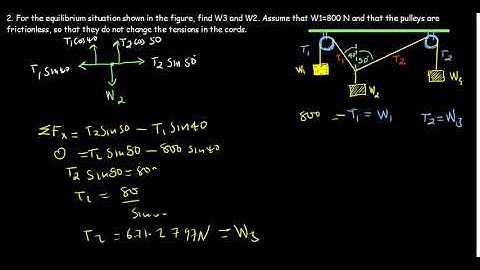 2. For the equilibrium situation shown in the figure, find W3 and W2. Assume that W1=800 N and that the pulleys are
frictionless, so that they do not change the tensions in the cords.
T1cos40 T2cos 50
T1 sin40 T2 sin 50
W2
T1 T1 40° 50° T2 T2
W1 W2 W3
800 - T1 = W1 T2 = W3
ΣFx = T2sin50 - T1 sin40
0 = T2 sin50 - 800 sin40
T2 sin50 = 800
T2 = 80
sin
T2 = 671.2797N = W3